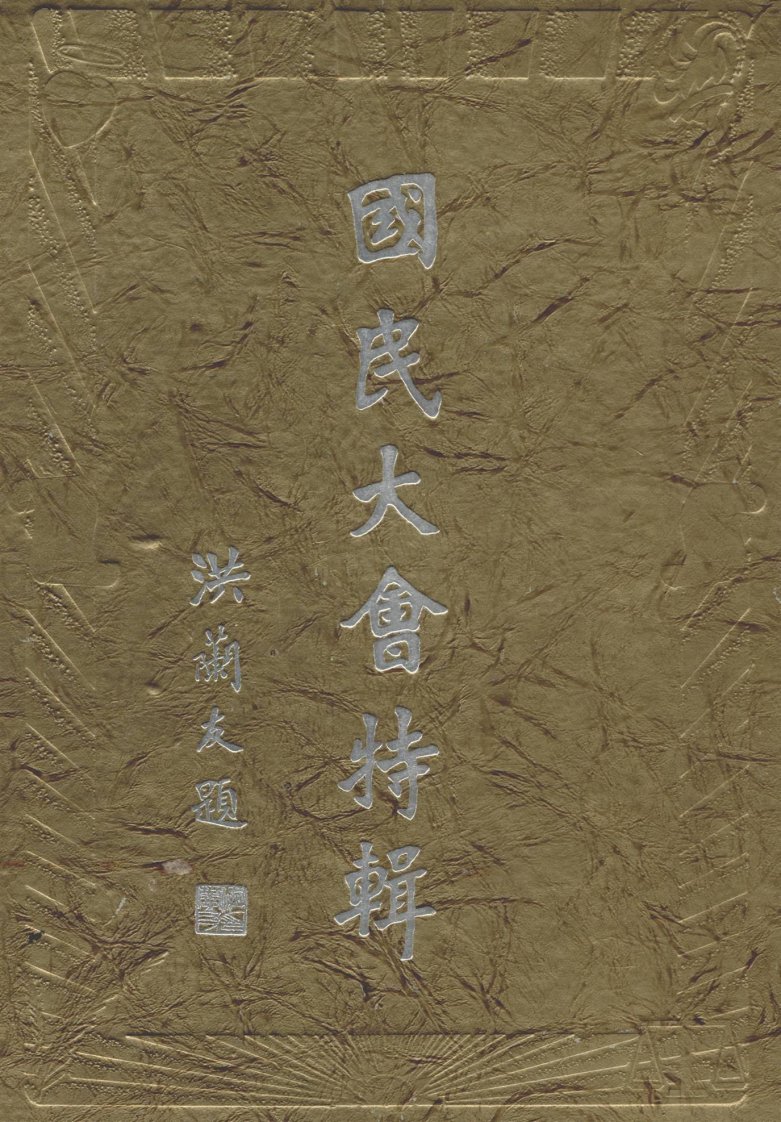 國民大會特輯
洪蘭友題